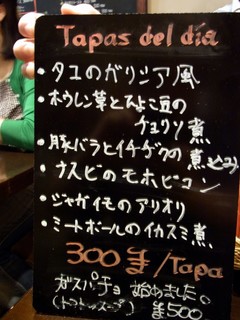 Tapas del día
・タコのガリシア風
・ホウレン草とひよこ豆の
チョリソ煮
・豚バラとイチヂクの煮込み
・ナスビのモホピコン
・ジャガイモのアリオリ
・ミートボールのイカスミ煮
300円/Tapa
ガスパチョ 始めました。
(トマトスープ) ¥500